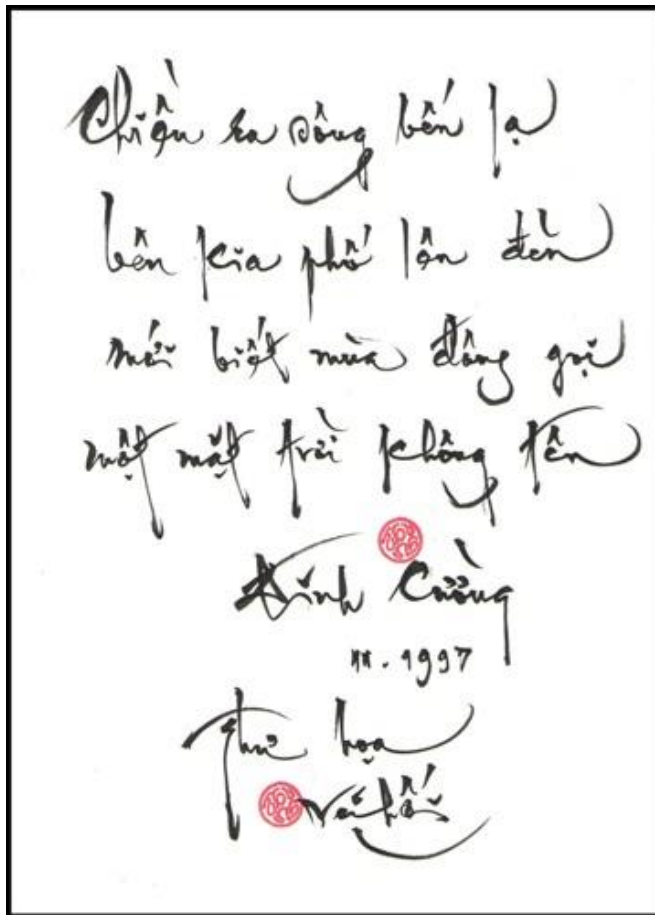 Chiều ra sông bến lạ
bên kia phố lên đèn
mới biết mùa đông gọi
một mặt trời không tên
Đinh Cường
11.1997
Thư họa